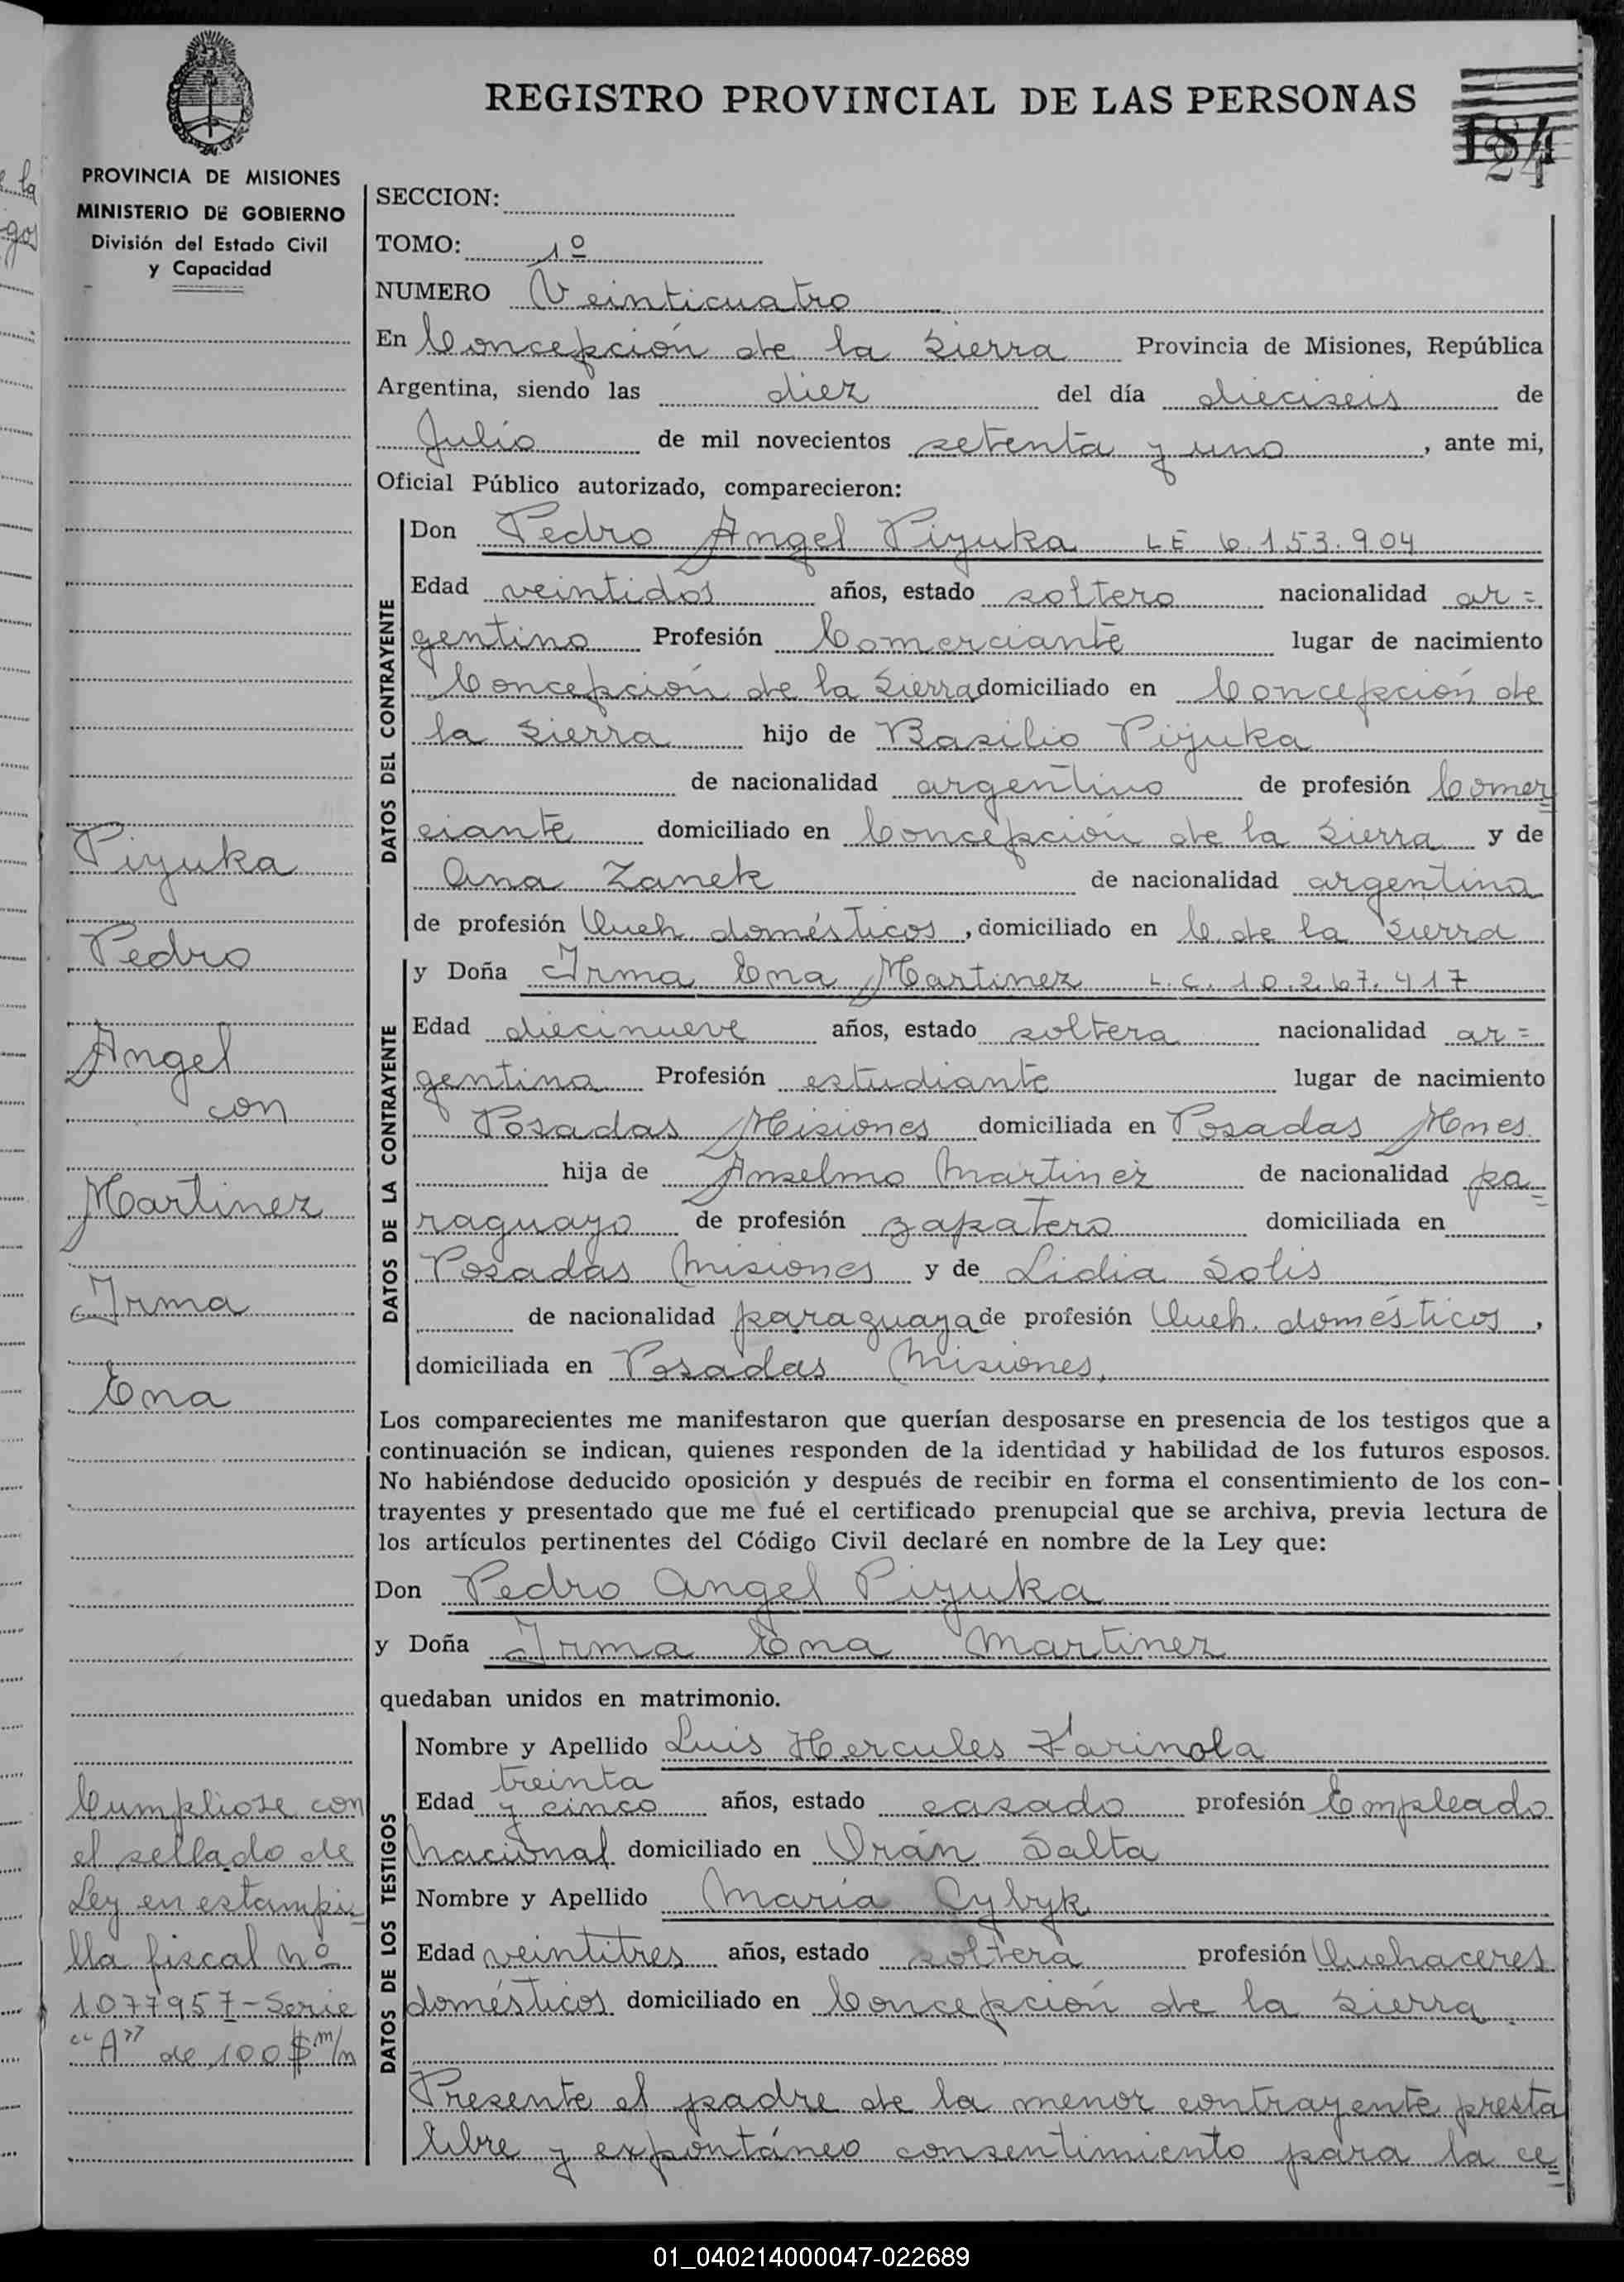 REGISTRO PROVINCIAL DE LAS PERSONAS
184
24
PROVINCIA DE MISIONES
MINISTERIO DE GOBIERNO
División del Estado Civil
y Capacidad
SECCION:
TOMO: 1º
NUMERO Veinticuatro
En Concepción de la Sierra Provincia de Misiones, República
Argentina, siendo las diez del día dieciseis de
Julio de mil novecientos setenta y uno, ante mi,
Oficial Público autorizado, comparecieron:
DATOS DEL CONTRAYENTE
Don Pedro Angel Piyuka LE 6.153.904
Edad veintidos años, estado soltero nacionalidad ar=
gentino Profesión Comerciante lugar de nacimiento
Concepción de la Sierra domiciliado en Concepción de
la Sierra hijo de Basilio Piyuka
de nacionalidad argentino de profesión Comer=
ciante domiciliado en Concepción de la Sierra y de
Ana Zanek de nacionalidad argentina
de profesión Queh domésticos, domiciliado en C de la Sierra
DATOS DE LA CONTRAYENTE
y Doña Irma Ena Martinez L.C. 10.267.417
Edad diecinueve años, estado soltera nacionalidad ar=
gentina Profesión estudiante lugar de nacimiento
Posadas Misiones domiciliada en Posadas Mnes.
hija de Anselmo Martinez de nacionalidad pa=
raguayo de profesión zapatero domiciliada en
Posadas Misiones y de Lidia Solis
de nacionalidad paraguaya de profesión Queh. domésticos,
domiciliada en Posadas Misiones,
Los comparecientes me manifestaron que querían desposarse en presencia de los testigos que a
continuación se indican, quienes responden de la identidad y habilidad de los futuros esposos.
No habiéndose deducido oposición y después de recibir en forma el consentimiento de los con-
trayentes y presentado que me fué el certificado prenupcial que se archiva, previa lectura de
los artículos pertinentes del Código Civil declaré en nombre de la Ley que:
Don Pedro Angel Piyuka
y Doña Irma Ena Martinez
quedaban unidos en matrimonio.
DATOS DE LOS TESTIGOS
Nombre y Apellido Luis Hercules Farinola
Edad treinta y cinco años, estado casado profesión Empleado
Nacional domiciliado en Orán Salta
Nombre y Apellido Maria Cybyk
Edad veintitres años, estado soltera profesión Quehaceres
domésticos domiciliado en Concepción de la Sierra.
Presente el padre de la menor contrayente presta
libre y expontáneo consentimiento para la ce=
Piyuka
Pedro
Angel
con
Martinez
Irma
Ena
Cumpliose con
el sellado de
Ley en estampi=
lla fiscal nº
1077957-Serie
"A" de 100 $ m/n
01_040214000047-022689